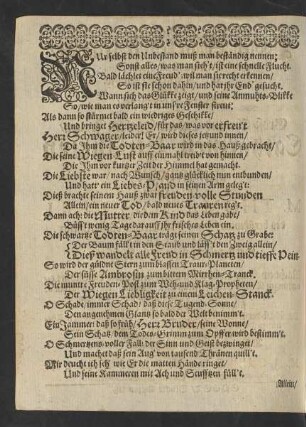 Nur selbst den Unbestand muß man beständig nennen;
Sonst alles/ was man sieh't/ ist eine schnelle Flucht.
Bald lächlet eine Freud' will man sie recht erkennen/
So ist sie schon dahin/ und hat ihr End' gesucht.
Wann sich das Glücke zeigt/ und seine Anmuhts-Blicke
So/ wie man es verlangt in uns're Fenster streut;
Als dann so stürmet bald ein wiedriges Geschicke/
Und bringet Hertzeleyd/ für das/ was vor erfreut.
Herr Schwager/ leider! Er/ wird dieses jetzund innen/
Da Ihm die Todten-Baar wird in das Hauß gebracht/
Die seine Wiegen-Lust auff einmahl treibt von hinnen/
Die Ihm vor kurtzer Zeit der Himmel hat gemacht.
Die Liebste war/ nach Wunsch/ gantz glücklich nun entbunden/
Und hatt' ein Liebes-Pfand in seinen Arm geleg't:
Dieß bracht in seinem Hauß zwar freuden volle Stunden
Allein/ ein neuer Tod/ bald neues Trauren reg't.
Dann ach! die Mutter/ die dem Kind das Leben gabe/
Büßt wenig Tage darauff ihr frisches Leben ein/
Die schwartze Todten-Baar trägt seinen Schatz zu Grabe
Der Baum fäll't in den Staub und läß't den Zweig allein/
Dieß wandelt alle Freud in Schmertz und tieffe Pein.
So wird der güldne Stern zum blassen Traur-Planeten/
Der süsse Ambrosin zum bittern Mirrhen-Tranck.
Die muntre Freuden Post zum Weh-und Klag-Propheten/
Der Wiegen Lieblichkeit zu einem Leichen-Stanck.
O Schade/ immer Schad/ daß diese Tugend-Sonne/
Den angenehmen Glantz so bald der Welt benimm't.
Ein Jammer! daß so früh/ Herr Bruder/ seine Wonne/
Sein Schatz/ dem Todes-Grimm zum Opffer wird bestimm't.
O Schmertzen! voller Fall! der Sinn und Geist bezwinget/
Und machet daß sein Aug' von tausend Thränen quill't.
Mir deucht ich seh' wie Er die matten Hände ringet/
Und seine Kammeren mit Ach und Seufftzen füll't.
Allein/